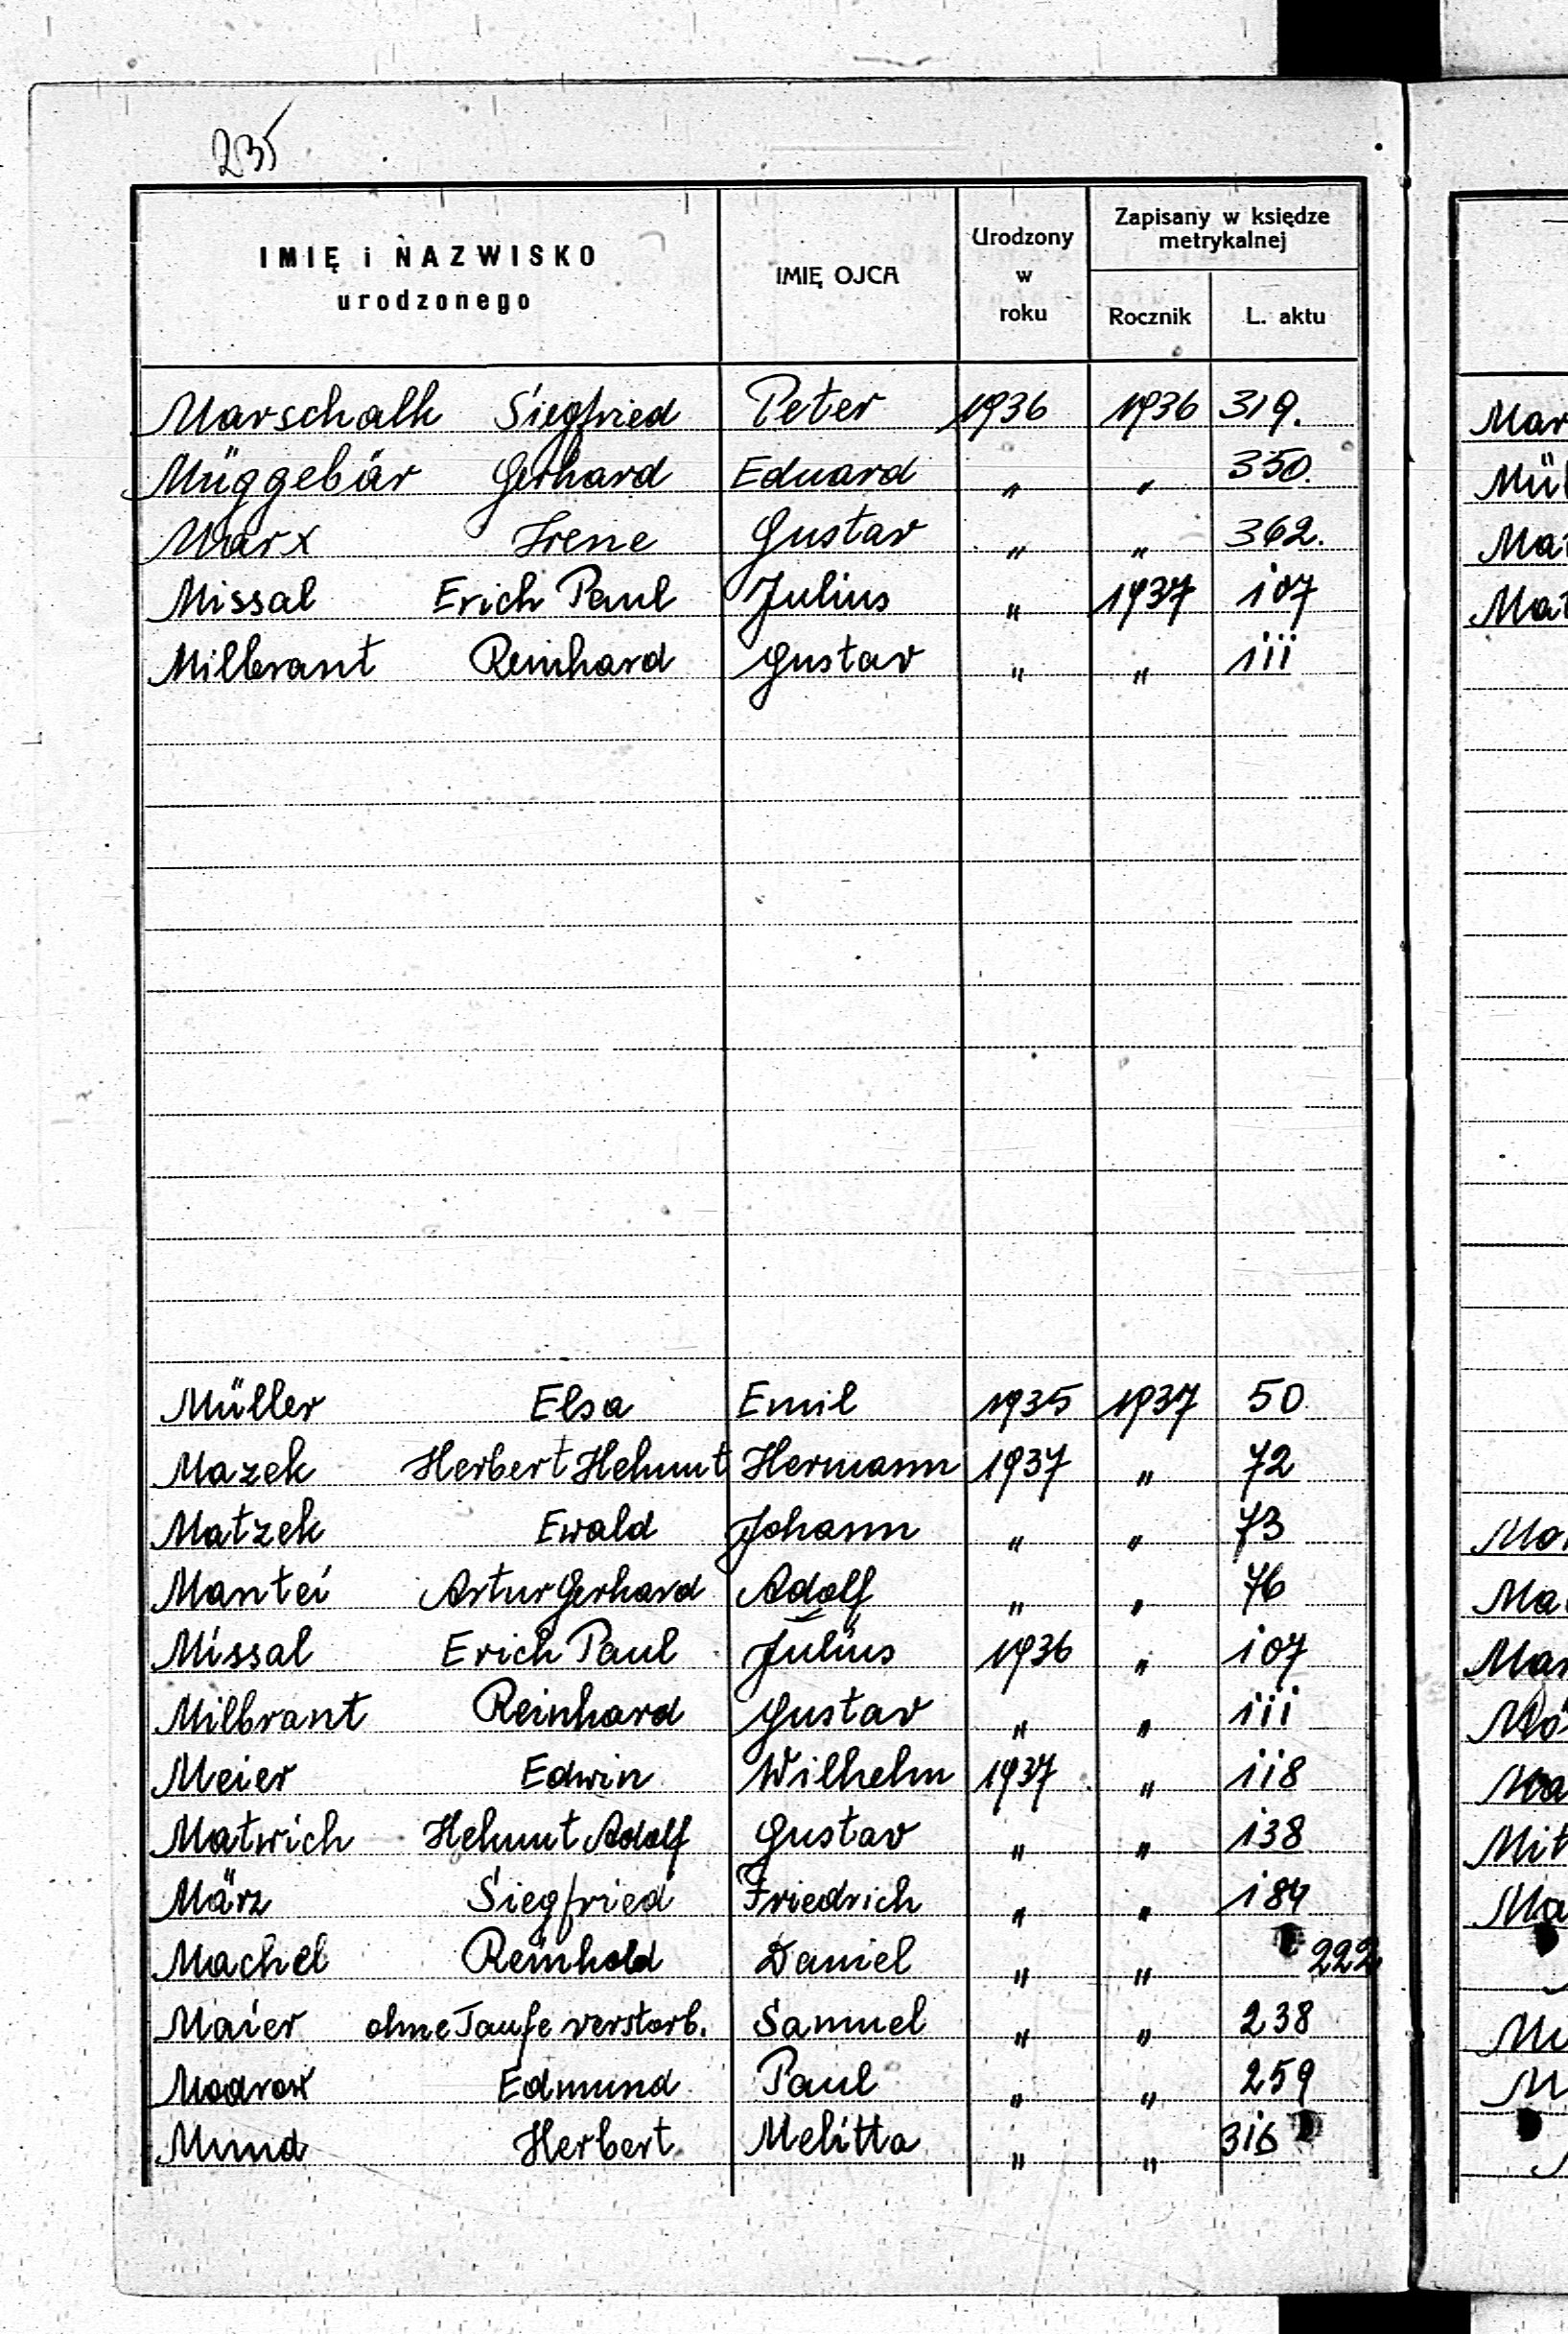 235
IMIĘ i NAZWISKO
urodzonego
IMIĘ OJCA
Urodzony
w
roku
Zapisany w księdze
metrykalnej
Rocznik L. aktu
Marschalk Siegfried Peter 1936 1936 319.
Müggebär Gerhard Eduard " " 350.
Marx Irene Gustav " " 362.
Missal Erich Paul Julius " 1937 107
Milbrant Reinhard Gustav " " 111
Müller Elsa Emil 1935 1937 50
Mazek Herbert Helmut Hermann 1937 " 72
Matzek Ewald Johann " " 73
Mantei Artur Gerhard Adolf " " 76
Missal Erich Paul Julius 1936 " 107
Milbrant Reinhard Gustav " " 111
Meier Edwin Wilhelm 1937 " 118
Matwich Helmut Adolf Gustav " " 138
März Siegfried Friedrich " " 184
Machel Reinhold Daniel " " 222
Maier ohne Taufe verstorb. Samuel " " 238
Edmund Paul " " 259
Mund Herbert Melitta " " 316